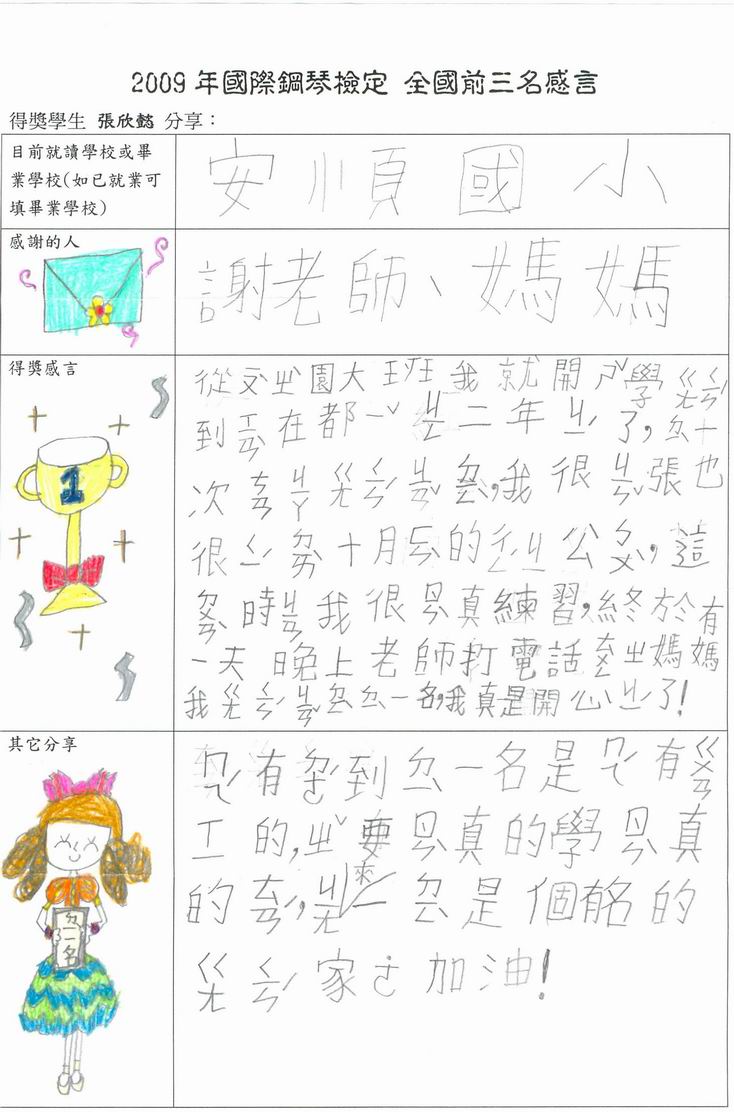 2009 年國際鋼琴檢定 全國前三名感言
得獎學生 張欣懿 分享：
目前就讀學校或畢
業學校(如已就業可
填畢業學校)
安順國小
感謝的人
謝老師、媽媽
得獎感言
從ㄧㄡˋㄓˋ園大班我就開ㄕˇ學ㄍㄤㄑㄧㄣˊ
到ㄒㄧㄢˋ在都一ˇㄐㄧㄥ二年ㄐㄧˊ了，ㄉㄧˋ十
次ㄘㄢㄐㄧㄚㄍㄤㄑㄧㄣˊㄐㄧㄢˇㄉㄧㄥˋ，我很ㄐㄧㄣˇ張也
很ㄒㄧㄥㄈㄣˋ十月ㄉㄧˇ的ㄔㄥˊㄐㄧ公ㄅㄨˋ，這
ㄉㄨㄢˋ時ㄐㄧㄢ我很ㄖㄣˋ真練習，終於有
一天晚上老師打電話ㄍㄠˋㄙㄨˋ媽媽
我ㄍㄤㄑㄧㄣˊㄐㄧㄢˇㄉㄧㄥˋㄉㄧˋ一名，我真是開心ㄐㄧˊ了!
其它分享
ㄋㄥˊ有ㄉㄜˊ到ㄉㄧˋ一名是ㄋㄥˊ有ㄍㄨㄥ
工的，ㄓˇ要ㄖㄣˋ真的學ㄖㄣˋ真
的ㄊㄢˊ，ㄐㄧㄤ來一ㄉㄧㄥˋ是個有名的
ㄍㄤㄑㄧㄣˊ家ㄜ˙加油!
ㄉㄧˋ一名
1